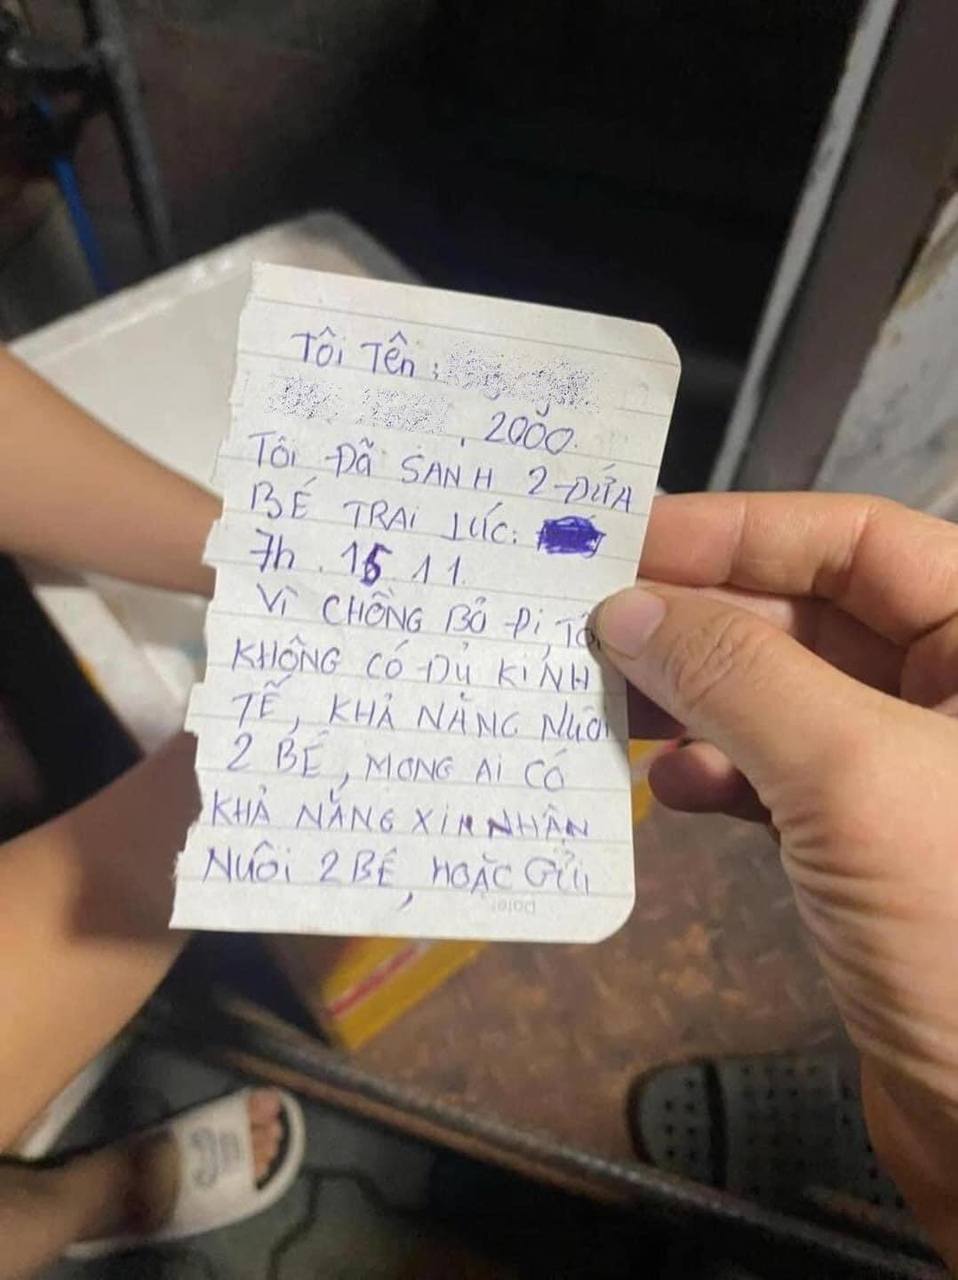 Tôi Tên :
, 2000.
Tôi ĐÃ SANH 2 ĐỨA
BÉ TRAI LÚC:
7h . 15 . 11.
Vì CHỒNG BỎ Đi, TÔ
KHÔNG CÓ ĐỦ KiNH
TẾ, KHẢ NĂNG NUÔi
2 BÉ, MONG Ai CÓ
KHẢ NĂNG XiN NHẬN
NUÔi 2 BÉ, HOẶC GỬi